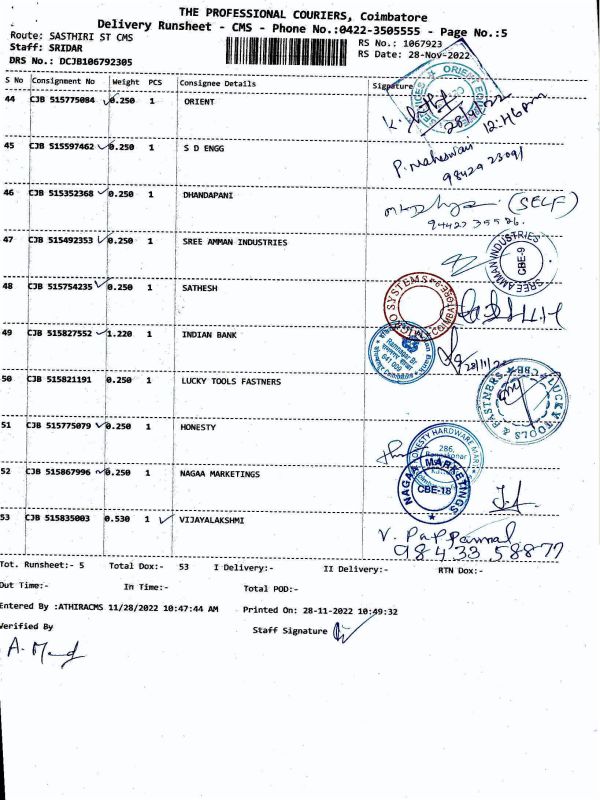 THE PROFESSIONAL COURIERS, Coimbatore
Delivery Runsheet - CMS - Phone No.:0422-3505555 - Page No.:5
Route: SASTHIRI ST CMS
RS No.: 1067923
Staff: SRIDAR
RS Date: 28-Nov-2022
DRS No.: DCJB106792305
S No Consignment No Weight PCS Consignee Details Signature
44 CJB 515775084 0.250 1 ORIENT
28/11/22
12:46pm
45 CJB 515597462 0.250 1 S D ENGG
P. Maheswari
98429 23091
46 CJB 515352368 0.250 1 DHANDAPANI
(SELF)
94422 35586
47 CJB 515492353 0.250 1 SREE AMMAN INDUSTRIES
SREE AMMAN INDUSTRIES
CBE-9
48 CJB 515754235 0.250 1 SATHESH
49 CJB 515827552 1.220 1 INDIAN BANK
Ramnagar Br
641 009
28/11/22
50 CJB 515821191 0.250 1 LUCKY TOOLS FASTNERS
LUCKY TOOLS & FASTNERS CBE
51 CJB 515775079 0.250 1 HONESTY
HONESTY HARDWARE MART
286,
52 CJB 515867996 0.250 1 NAGAA MARKETINGS
NAGAA MARKETINGS
CBE-18
53 CJB 515835003 0.530 1 VIJAYALAKSHMI
V. Pappammal
98433 58877
Tot. Runsheet:- 5 Total Dox:- 53 I Delivery:- II Delivery:- RTN Dox:-
Out Time:- In Time:- Total POD:-
Entered By :ATHIRACMS 11/28/2022 10:47:44 AM Printed On: 28-11-2022 10:49:32
Verified By
Staff Signature